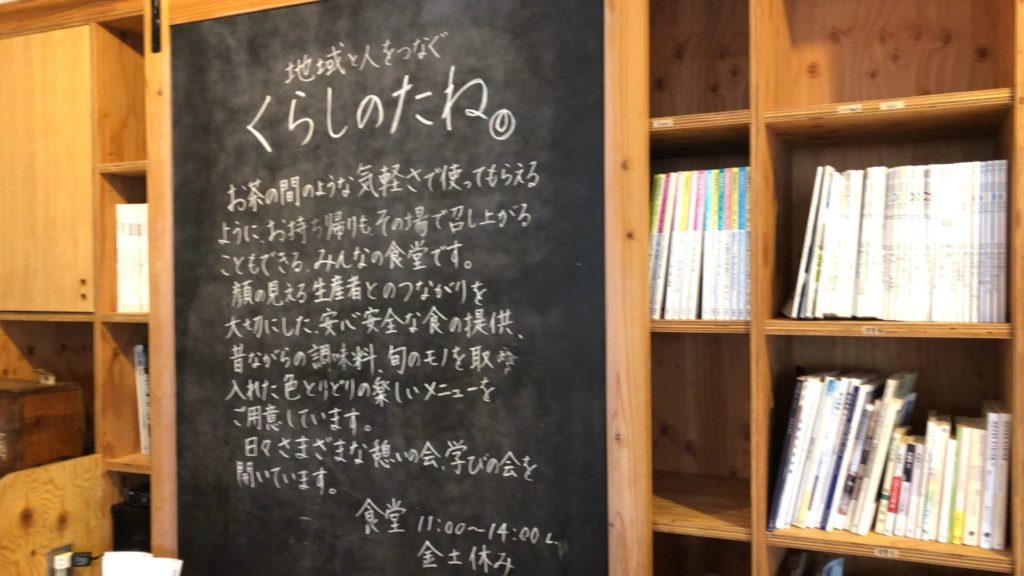 地域と人をつなぐ
くらしのたね。
お茶の間のような気軽さで使ってもらえる
ように、お持ち帰りもその場で召し上がる
こともできる みんなの食堂です。
顔の見える生産者とのつながりを
大切にした、安心安全な食の提供、
昔ながらの調味料、旬のモノを取り
入れた色とりどりの楽しいメニューを
ご用意しています。
日々さまざまな憩いの会、学びの会を
開いています。
食堂 11:00〜14:00
金土休み